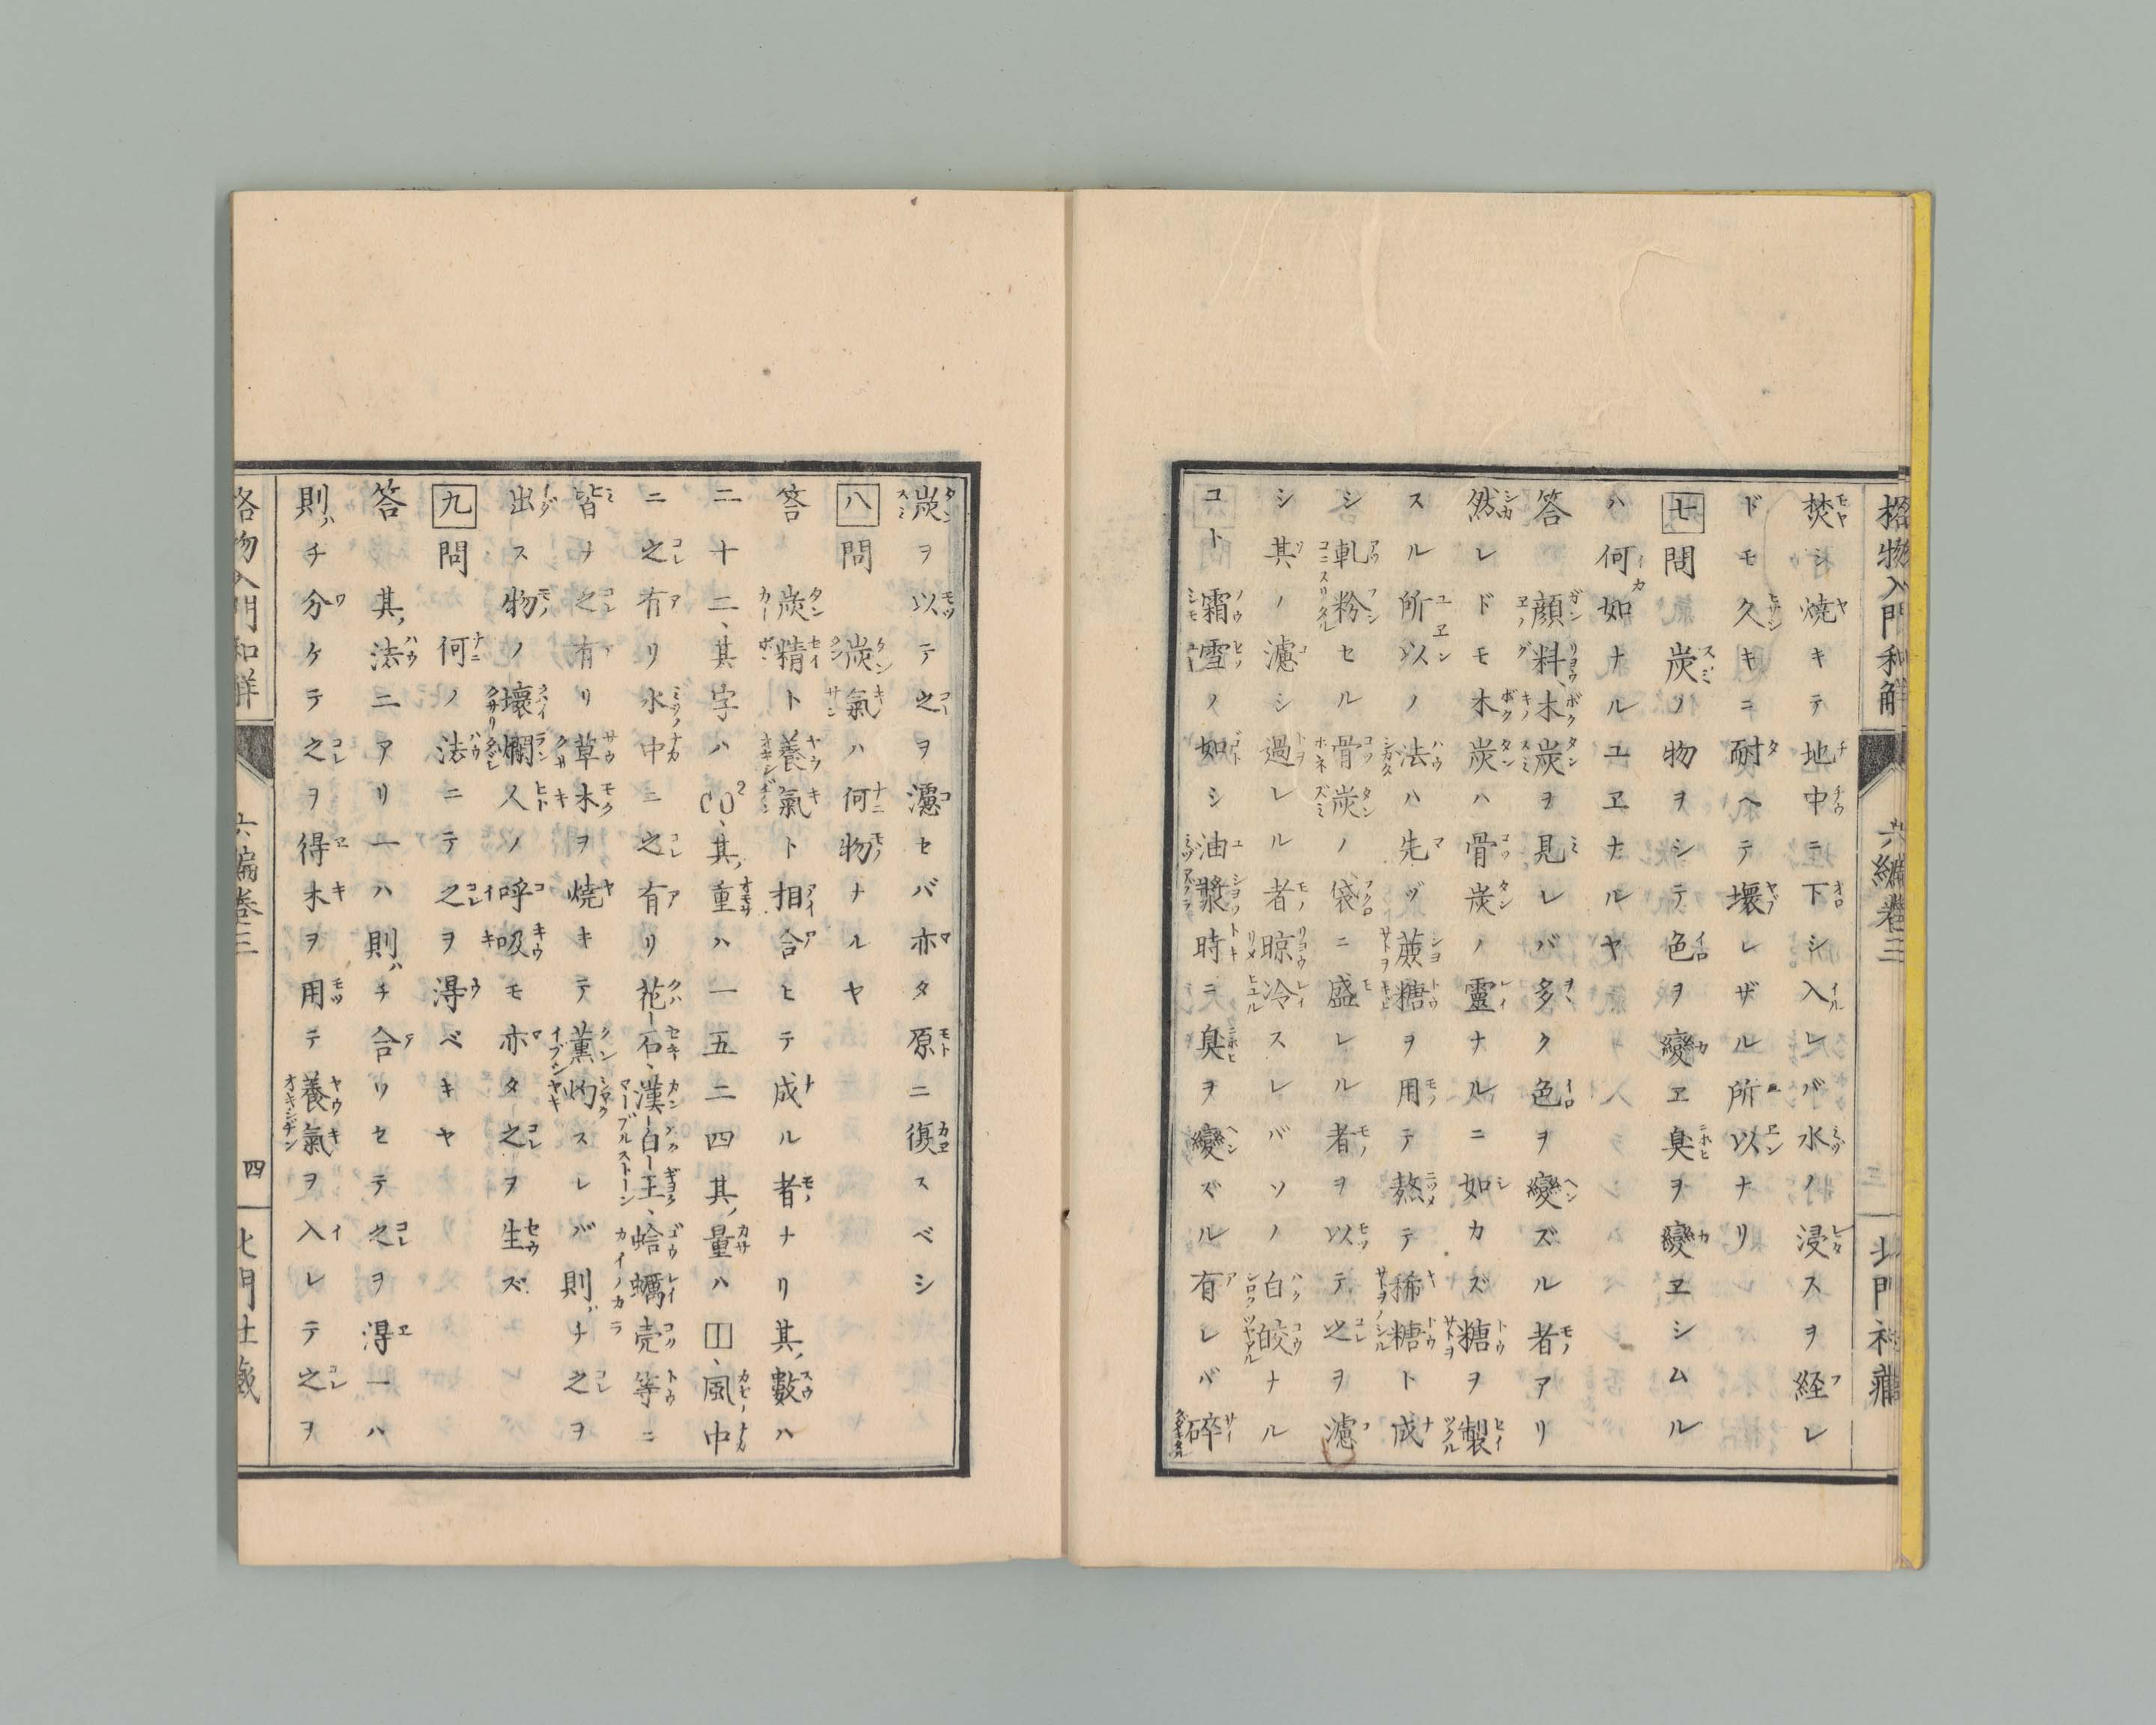 格物入門和解 六編卷三 北門社藏
焚シ焼キテ地中ニ下シ入レバ水ノ浸スヲ経レ
ドモ久キニ耐ヘテ壞レザル所以ナリ
七問 炭ノ物ヲシテ色ヲ變ヱ臭ヲ變ヱシムル
ハ何如ナルユヱナルヤ
答 顔料、木炭ヲ見レバ多ク色ヲ變ズル者アリ
然レドモ木炭ハ骨炭ノ靈ナルニ如カズ糖ヲ製
スル所以ノ法ハ先ヅ蔗糖ヲ用テ熬テ稀糖ト成
シ軋粉セル骨炭ノ袋ニ盛レル者ヲ以テ之ヲ濾
シ其ノ濾シ過レル者晾冷スレバソノ白皎ナル
コト霜雪ノ如シ油漿時ニ臭ヲ變ズル有レバ碎
炭ヲ以テ之ヲ濾セバ亦タ原ニ復スベシ
八問 炭氣ハ何物ナルヤ
答 炭精ト養氣ト相合ヒテ成ル者ナリ其數ハ
二十二、其字ハCO²、其重ハ一五二四其量ハ囗、風中
ニ之有リ水中ニ之有リ花石、漢白玉、蛤蠣壳等ニ
皆ナ之有リ草木ヲ焼キテ薫灼スレバ則チ之ヲ
出ス物ノ壞爛人ノ呼吸モ亦タ之ヲ生ズ
九問 何ノ法ニテ之ヲ得ベキヤ
答 其法二アリ一ハ則チ合リセテ之ヲ得一ハ
則チ分ケテ之ヲ得木ヲ用テ養氣ヲ入レテ之ヲ
格物入門和解 六編卷三 四 北門社藏